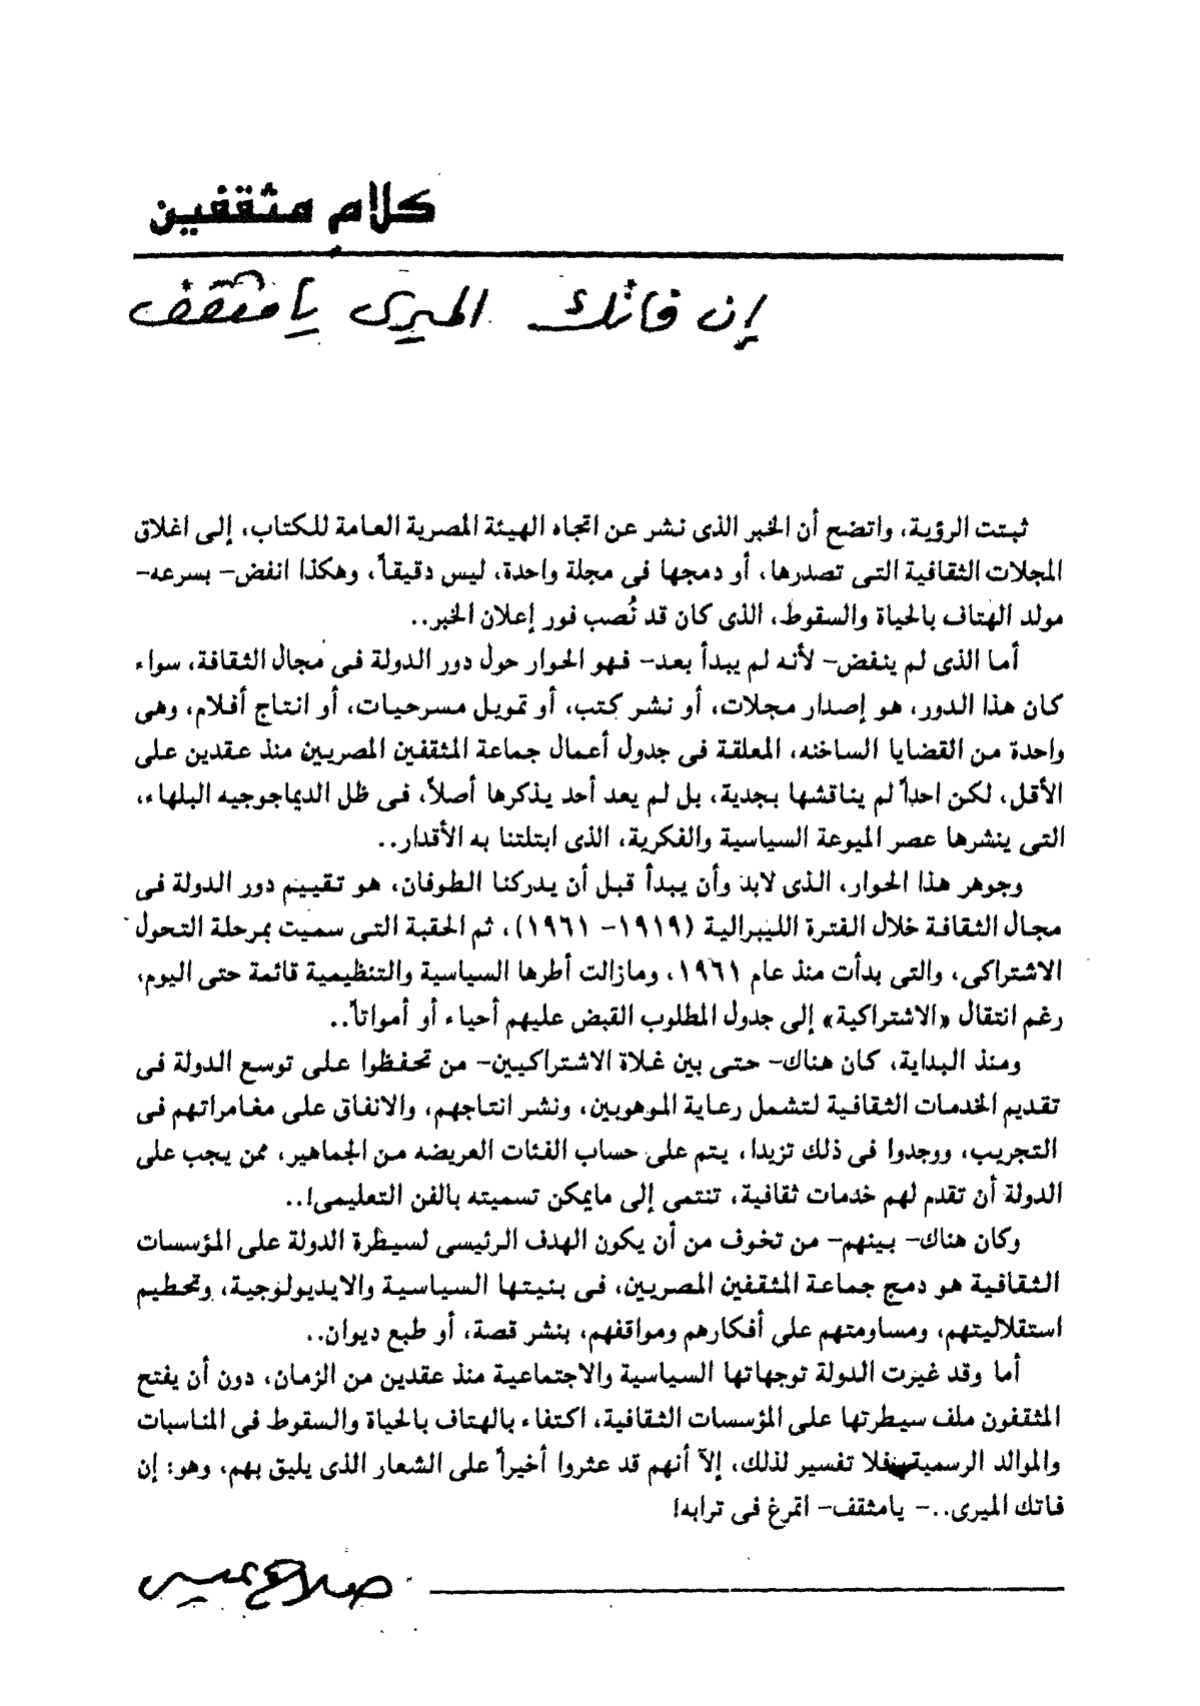 كلام مثقفين
إن فاتك الميرى يا مثقف
ثبتت الرؤية، واتضح أن الخبر الذى نشر عن اتجاه الهيئة المصرية العامة للكتاب، إلى اغلاق
المجلات الثقافية التى تصدرها، أو دمجها فى مجلة واحدة، ليس دقيقاً، وهكذا انفض- بسرعه-
مولد الهتاف بالحياة والسقوط، الذى كان قد نُصب فور إعلان الخبر..
أما الذى لم ينفض- لأنه لم يبدأ بعد- فهو الحوار حول دور الدولة فى مجال الثقافة، سواء
كان هذا الدور، هو إصدار مجلات، أو نشر كتب، أو تمويل مسرحيات، أو انتاج أفلام، وهى
واحدة من القضايا الساخنه، المعلقة فى جدول أعمال جماعة المثقفين المصريين منذ عقدين على
الأقل، لكن احداً لم يناقشها بجدية، بل لم يعد أحد يذكرها أصلاً، فى ظل الديماجوجيه البلهاء،
التى ينشرها عصر الميوعة السياسية والفكرية، الذى ابتلتنا به الأقدار..
وجوهر هذا الحوار، الذى لابد وأن يبدأ قبل أن يدركنا الطوفان، هو تقييم دور الدولة فى
مجال الثقافة خلال الفترة الليبرالية (١٩١٩- ١٩٦١)، ثم الحقبة التى سميت بمرحلة التحول
الاشتراكى، والتى بدأت منذ عام ١٩٦١، ومازالت أطرها السياسية والتنظيمية قائمة حتى اليوم،
رغم انتقال «الاشتراكية» إلى جدول المطلوب القبض عليهم أحياء أو أمواتاً..
ومنذ البداية، كان هناك- حتى بين غلاة الاشتراكيين- من تحفظوا على توسع الدولة فى
تقديم الخدمات الثقافية لتشمل رعاية الموهوبين، ونشر انتاجهم، والانفاق على مغامراتهم فى
التجريب، ووجدوا فى ذلك تزيدا، يتم على حساب الفئات العريضه من الجماهير، ممن يجب على
الدولة أن تقدم لهم خدمات ثقافية، تنتمى إلى مايمكن تسميته بالفن التعليمى!..
وكان هناك- بينهم- من تخوف من أن يكون الهدف الرئيسى لسيطرة الدولة على المؤسسات
الثقافية هو دمج جماعة المثقفين المصريين، فى بنيتها السياسية والايديولوجية، وتحطيم
استقلاليتهم، ومساومتهم على أفكارهم ومواقفهم، بنشر قصة، أو طبع ديوان..
أما وقد غيرت الدولة توجهاتها السياسية والاجتماعية منذ عقدين من الزمان، دون أن يفتح
المثقفون ملف سيطرتها على المؤسسات الثقافية، اكتفاء بالهتاف بالحياة والسقوط فى المناسبات
والموالد الرسمية فلا تفسير لذلك، إلآ أنهم قد عثروا أخيراً على الشعار الذى يليق بهم، وهو: إن
فاتك الميرى..- يامثقف- اتمرغ فى ترابه!
صلاح عيسى